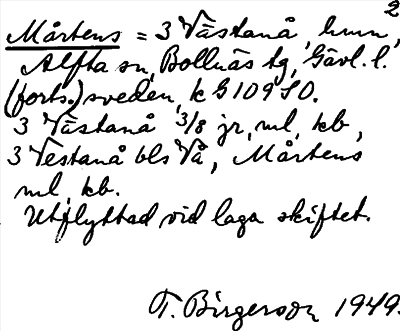 2
Mårtens = 3 Västanå, hmn,
Alfta sn, Bollnäs tg, Gävl. l.
(forts.) sveden, k G109 S O.
3 Västanå 3/8 jr, ml, kb,
3 Vestanå bls Vå, Mårtens
ml, kb.
Utflyttad vid laga skiftet.
T. Birgerson 1949.